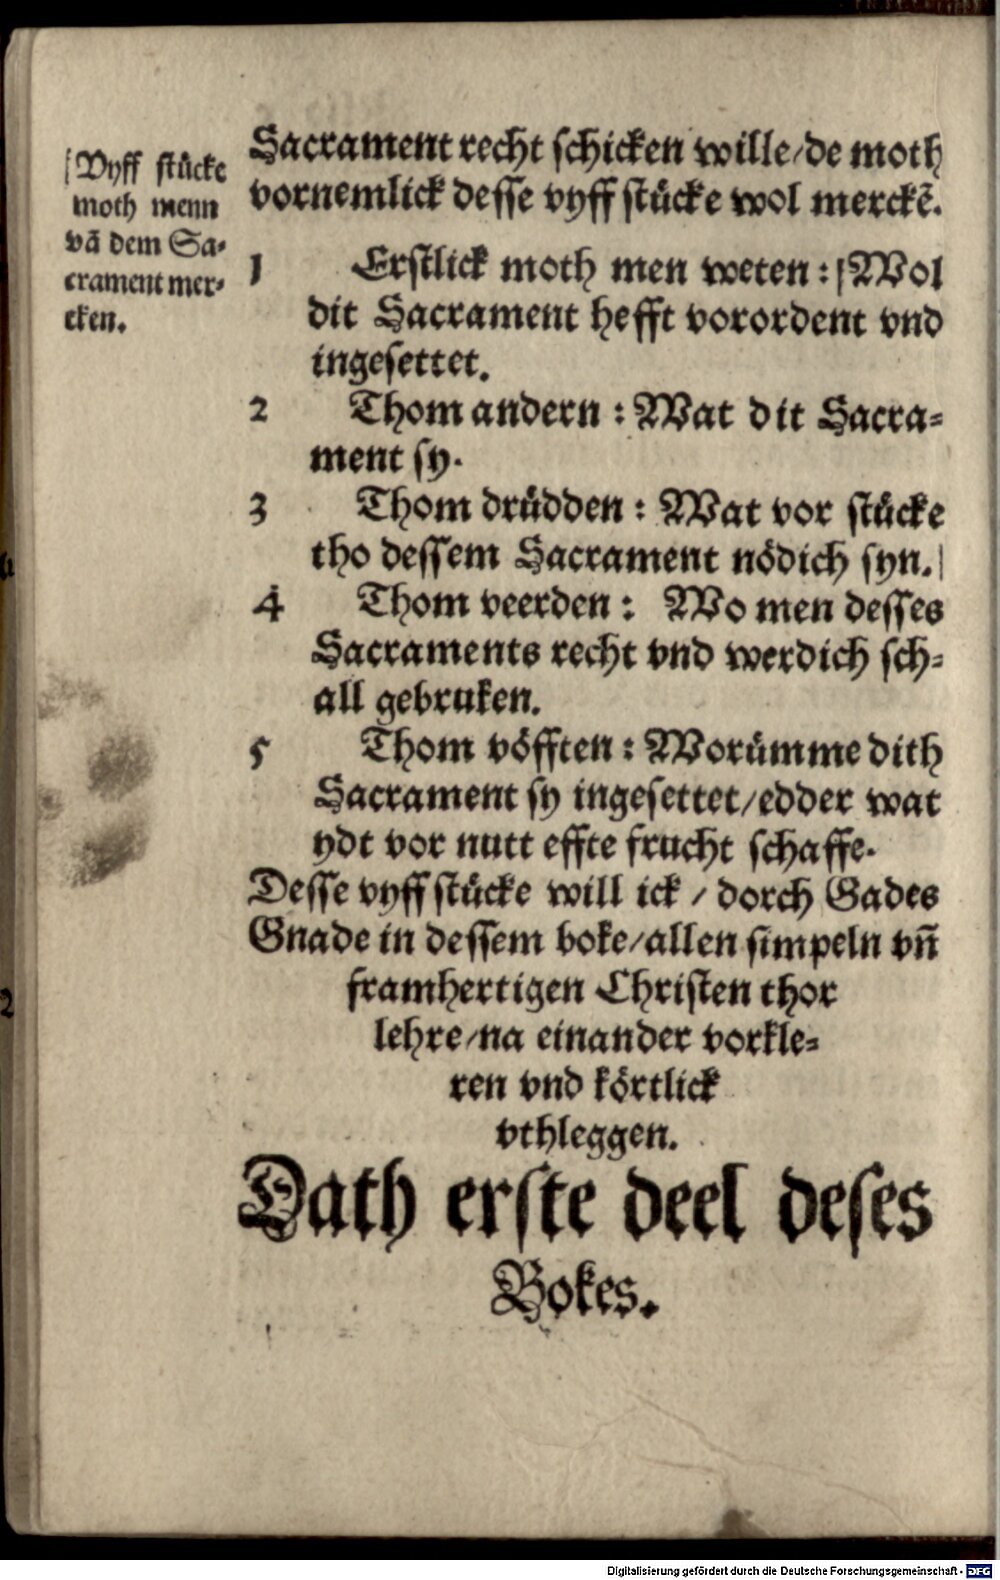 Vyff stücke
moth menn
vā dem Sa-
crament mer-
cken.
Sacrament recht schicken wille/de moth
vornemlick desse vyff stücke wol merckē.
1 Erstlick moth men weten: Wol
dit Sacrament hefft vorordent vnd
ingesettet.
2 Thom andern: Wat dit Sacra-
ment sy.
3 Thom drüdden: Wat vor stücke
tho dessem Sacrament nödich syn.
4 Thom veerden: Wo men desses
Sacraments recht vnd werdich sch-
all gebruken.
5 Thom vöfften: Worümme dith
Sacrament sy ingesettet/edder wat
ydt vor nutt effte frucht schaffe.
Desse vyff stücke will ick / dorch Gades
Gnade in dessem boke/allen simpeln vñ
framhertigen Christen thor
lehre/na einander vorkle-
ren vnd körtlick
vthleggen.
Dath erste deel deses
Bokes.
Digitalisierung gefördert durch die Deutsche Forschungsgemeinschaft - DFG